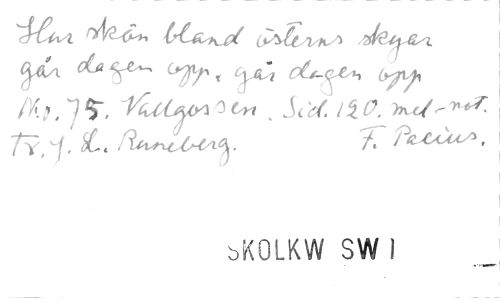 Hur skön bland österns skyar
går dagen opp, går dagen opp
No. 75. Vallgossen. Sid. 120. mel-not.
Tr. J. L. Runeberg. F. Pacius.
SKOLKW SW 1